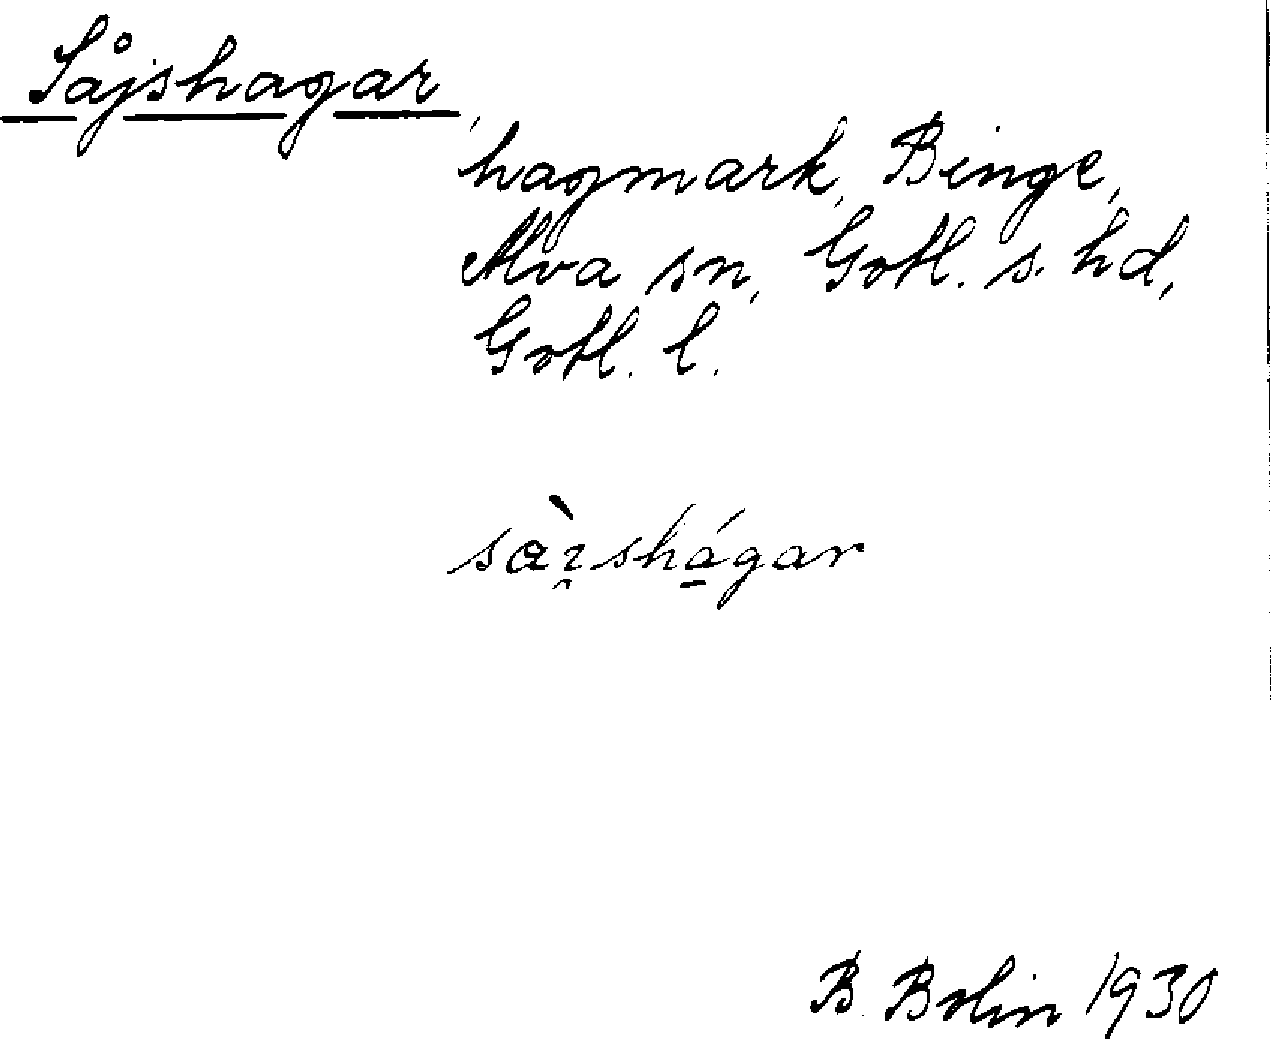 Såjshagar,
hagmark, Binge,
Alva sn, Gotl. s. hd,
Gotl. l.
sàı̯shá̱gar
B. Bolin 1930